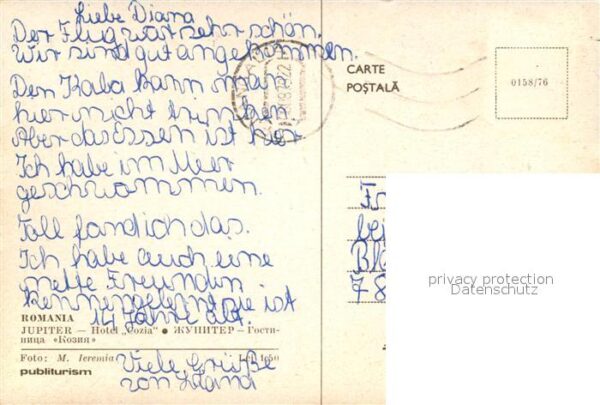 Liebe Diana
Der Flug war sehr schön.
Wir sind gut angekommen.
Den Kaba kann man
hier nicht trinken
Aber das Essen ist hier
Ich habe im Meer
geschwommen.
Toll fand ich das.
Ich habe auch eine
nette Freundin
kennengelernt sie ist
14 Jahre alt.
Viele Grüße
von
ROMANIA
JUPITER — Hotel „Cozia" ● ЖУПИТЕР — Гости-
ница «Козия»
Foto: M. Ieremia Lei 1,50
publiturism
CARTE
POŞTALĂ
0158/76
Fr
bei
78
privacy protection
Datenschutz